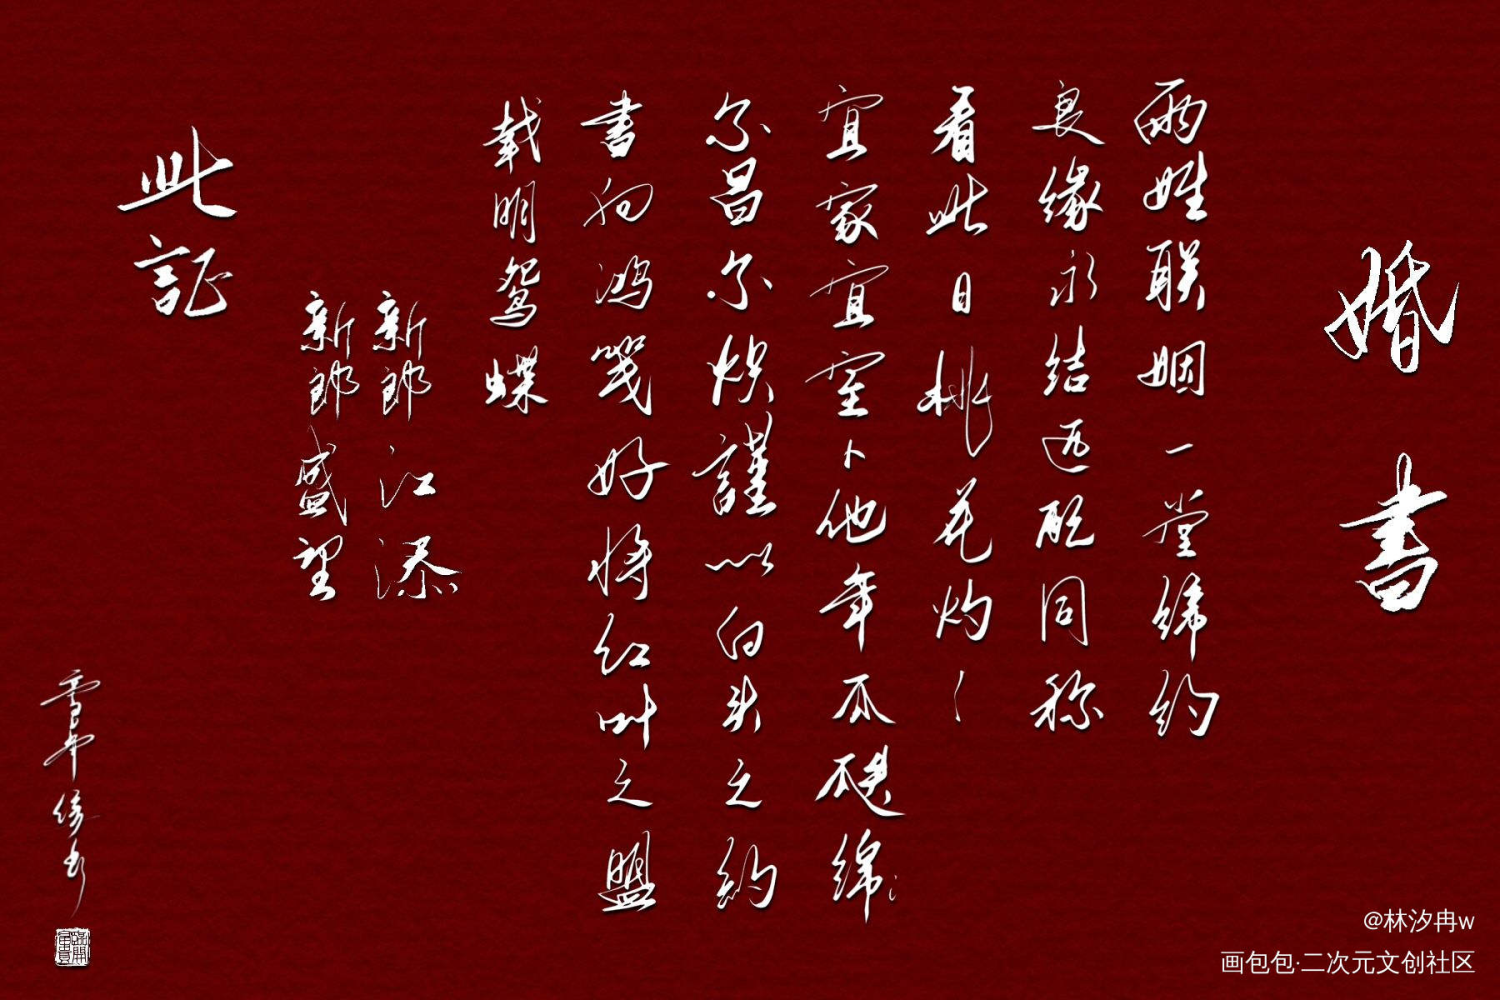 婚書
兩姓联姻一堂缔约
良缘永结匹配同称
看此日桃花灼々
宜家宜室卜他年瓜瓞绵々
尔昌尔炽謹以白头之約
書向鸿笺好将红叶之盟
载明鸳蝶
新郎江添
新郎盛望
此証
@林汐冉w
画包包·二次元文创社区